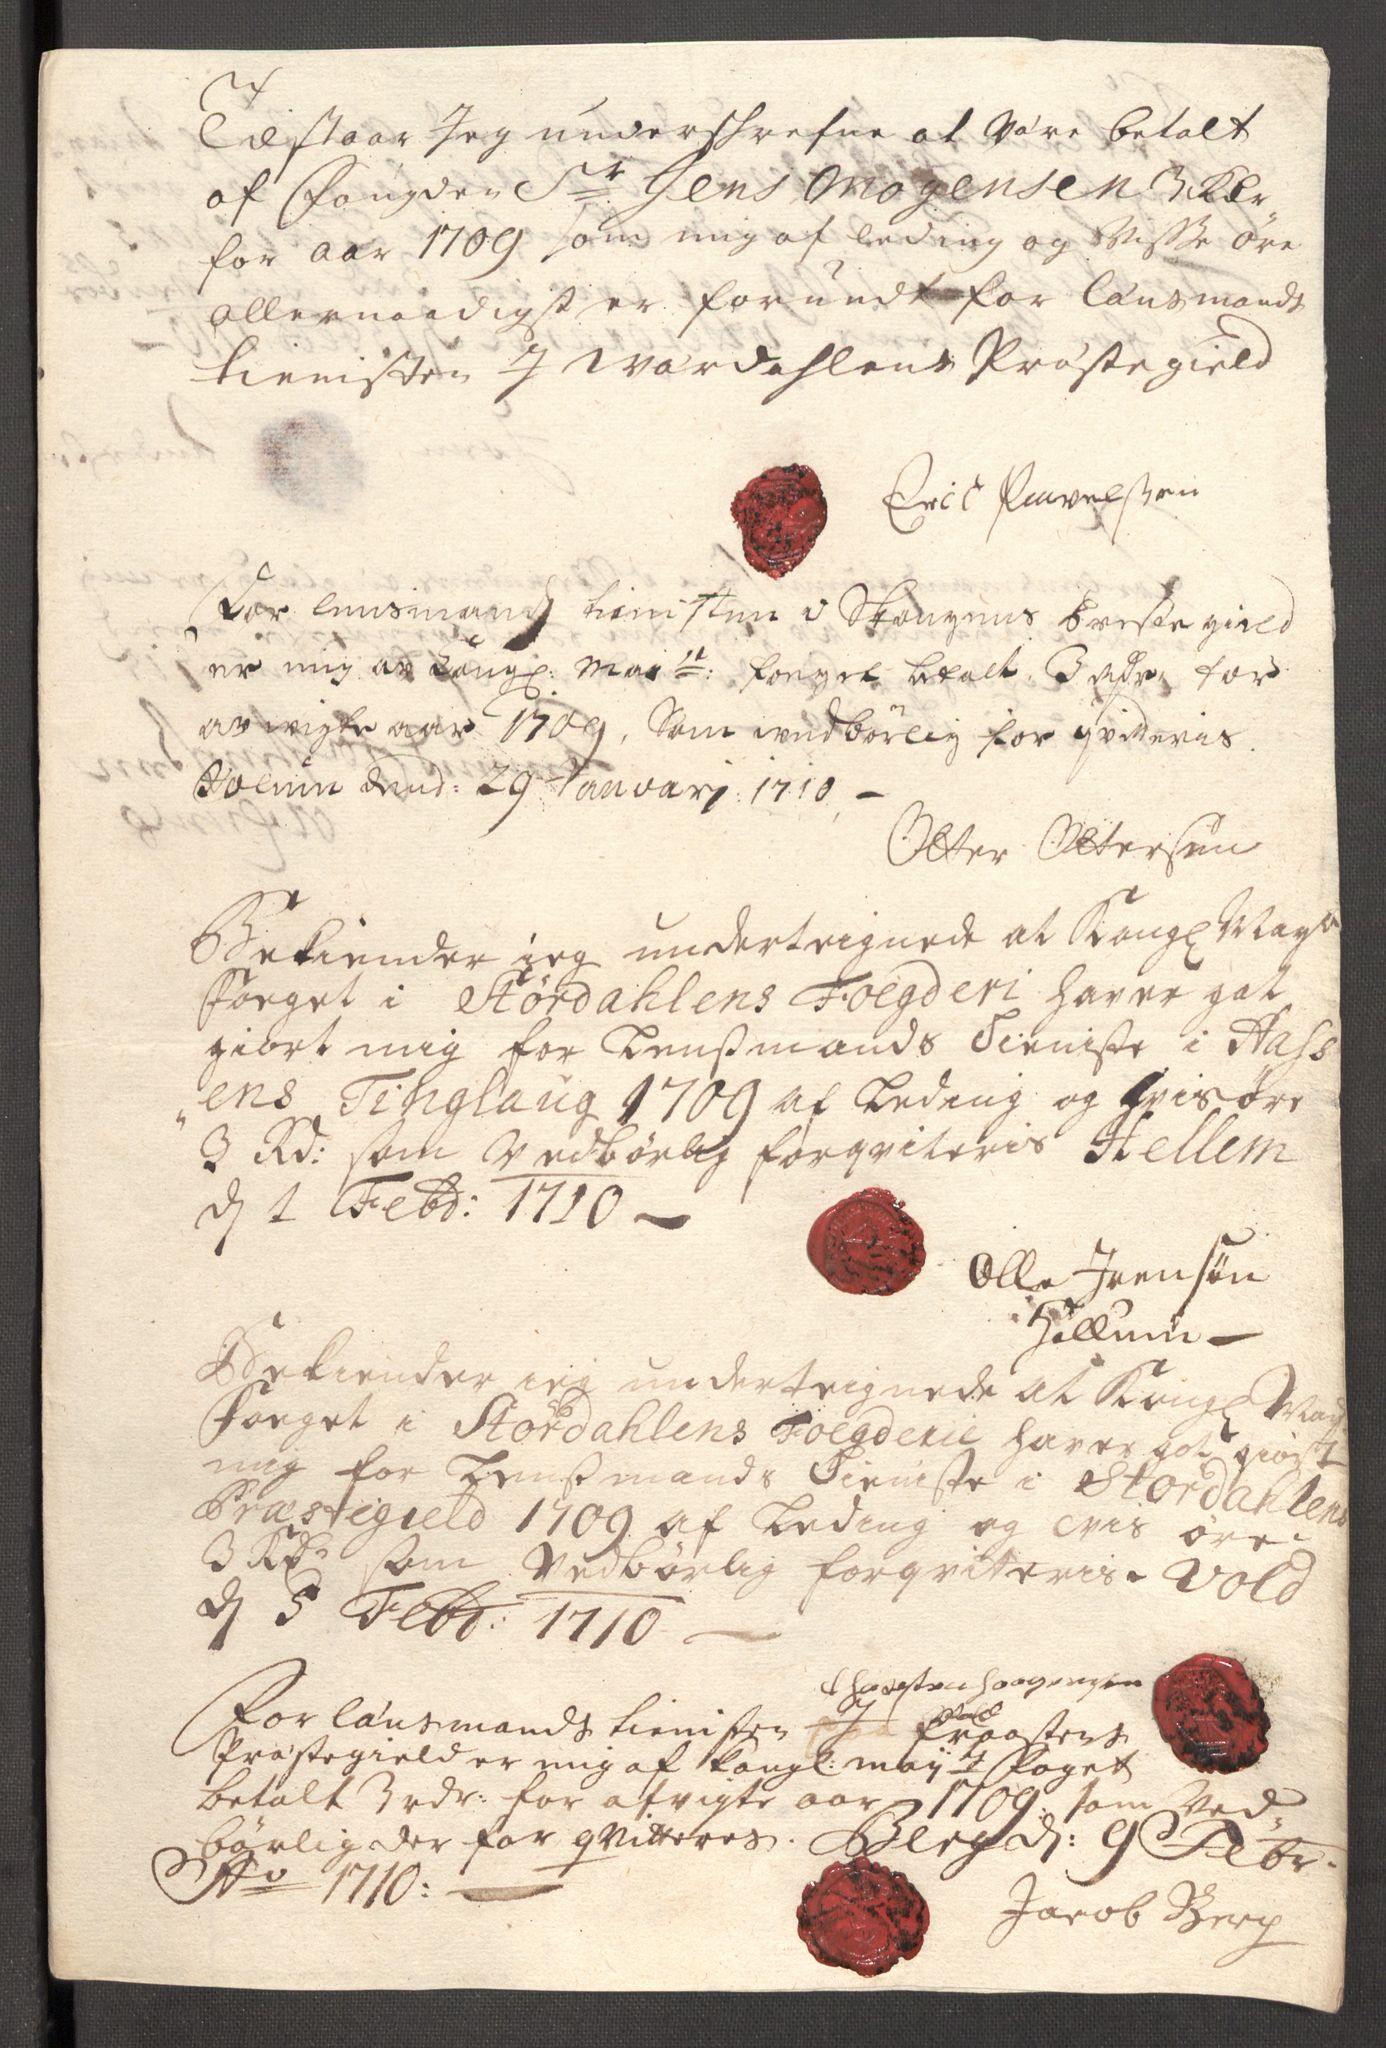 Tilstaar Jeg underschrefne at være betalt
af Fougden Sr Jens Mogensen 3 Rdr
for aar 1709 som mig af leding og Visse öre
allernaadigst er forundt for länsmands
tienisten J Wærdahlens Præstegield
Eric Pauelsen
For lensmands tienisten i Skongens Prestegield
er mig av Kongl: Maits: foeget betalt 3 rdr for
avvigte aar 1709, Som vedbörlig for qvitteris.
dend: 29 Januarj: 1710, –
Otter Ottersen
Bekiender ieg underteignede at Kongl May
Foeget i Størdahlens Foegderi haver got
giort mig for Lenssmands Tieniste i Hass
ens Tinglaug 1709 af Leding og visøre
3 Rd: som Vedbørlig forqviteris Hellem
d 1 Febr: 1710 –
Olle Jvensøn
Hellum –
Bekiender ieg underteignede at Kongl May
Foeget i Størdahlens Foegderie haver got giort
mig for Lenssmands Tieniste i Størdahlens
Præstegield 1709 af Leding og vis øre
3 Rdr som Vedbørlig forqviteris. Vold
d 5 Febr: 1710 –
Vold
For länsmands tienisten J Fraastens
Præstegield er mig af kongl: may foget
betalt 3 rdr: for afvigte aar 1709: som Ved=
börlig der for qvitteres. Berg d: 9 Febr.
Ao 1710: –
Jacob Berg